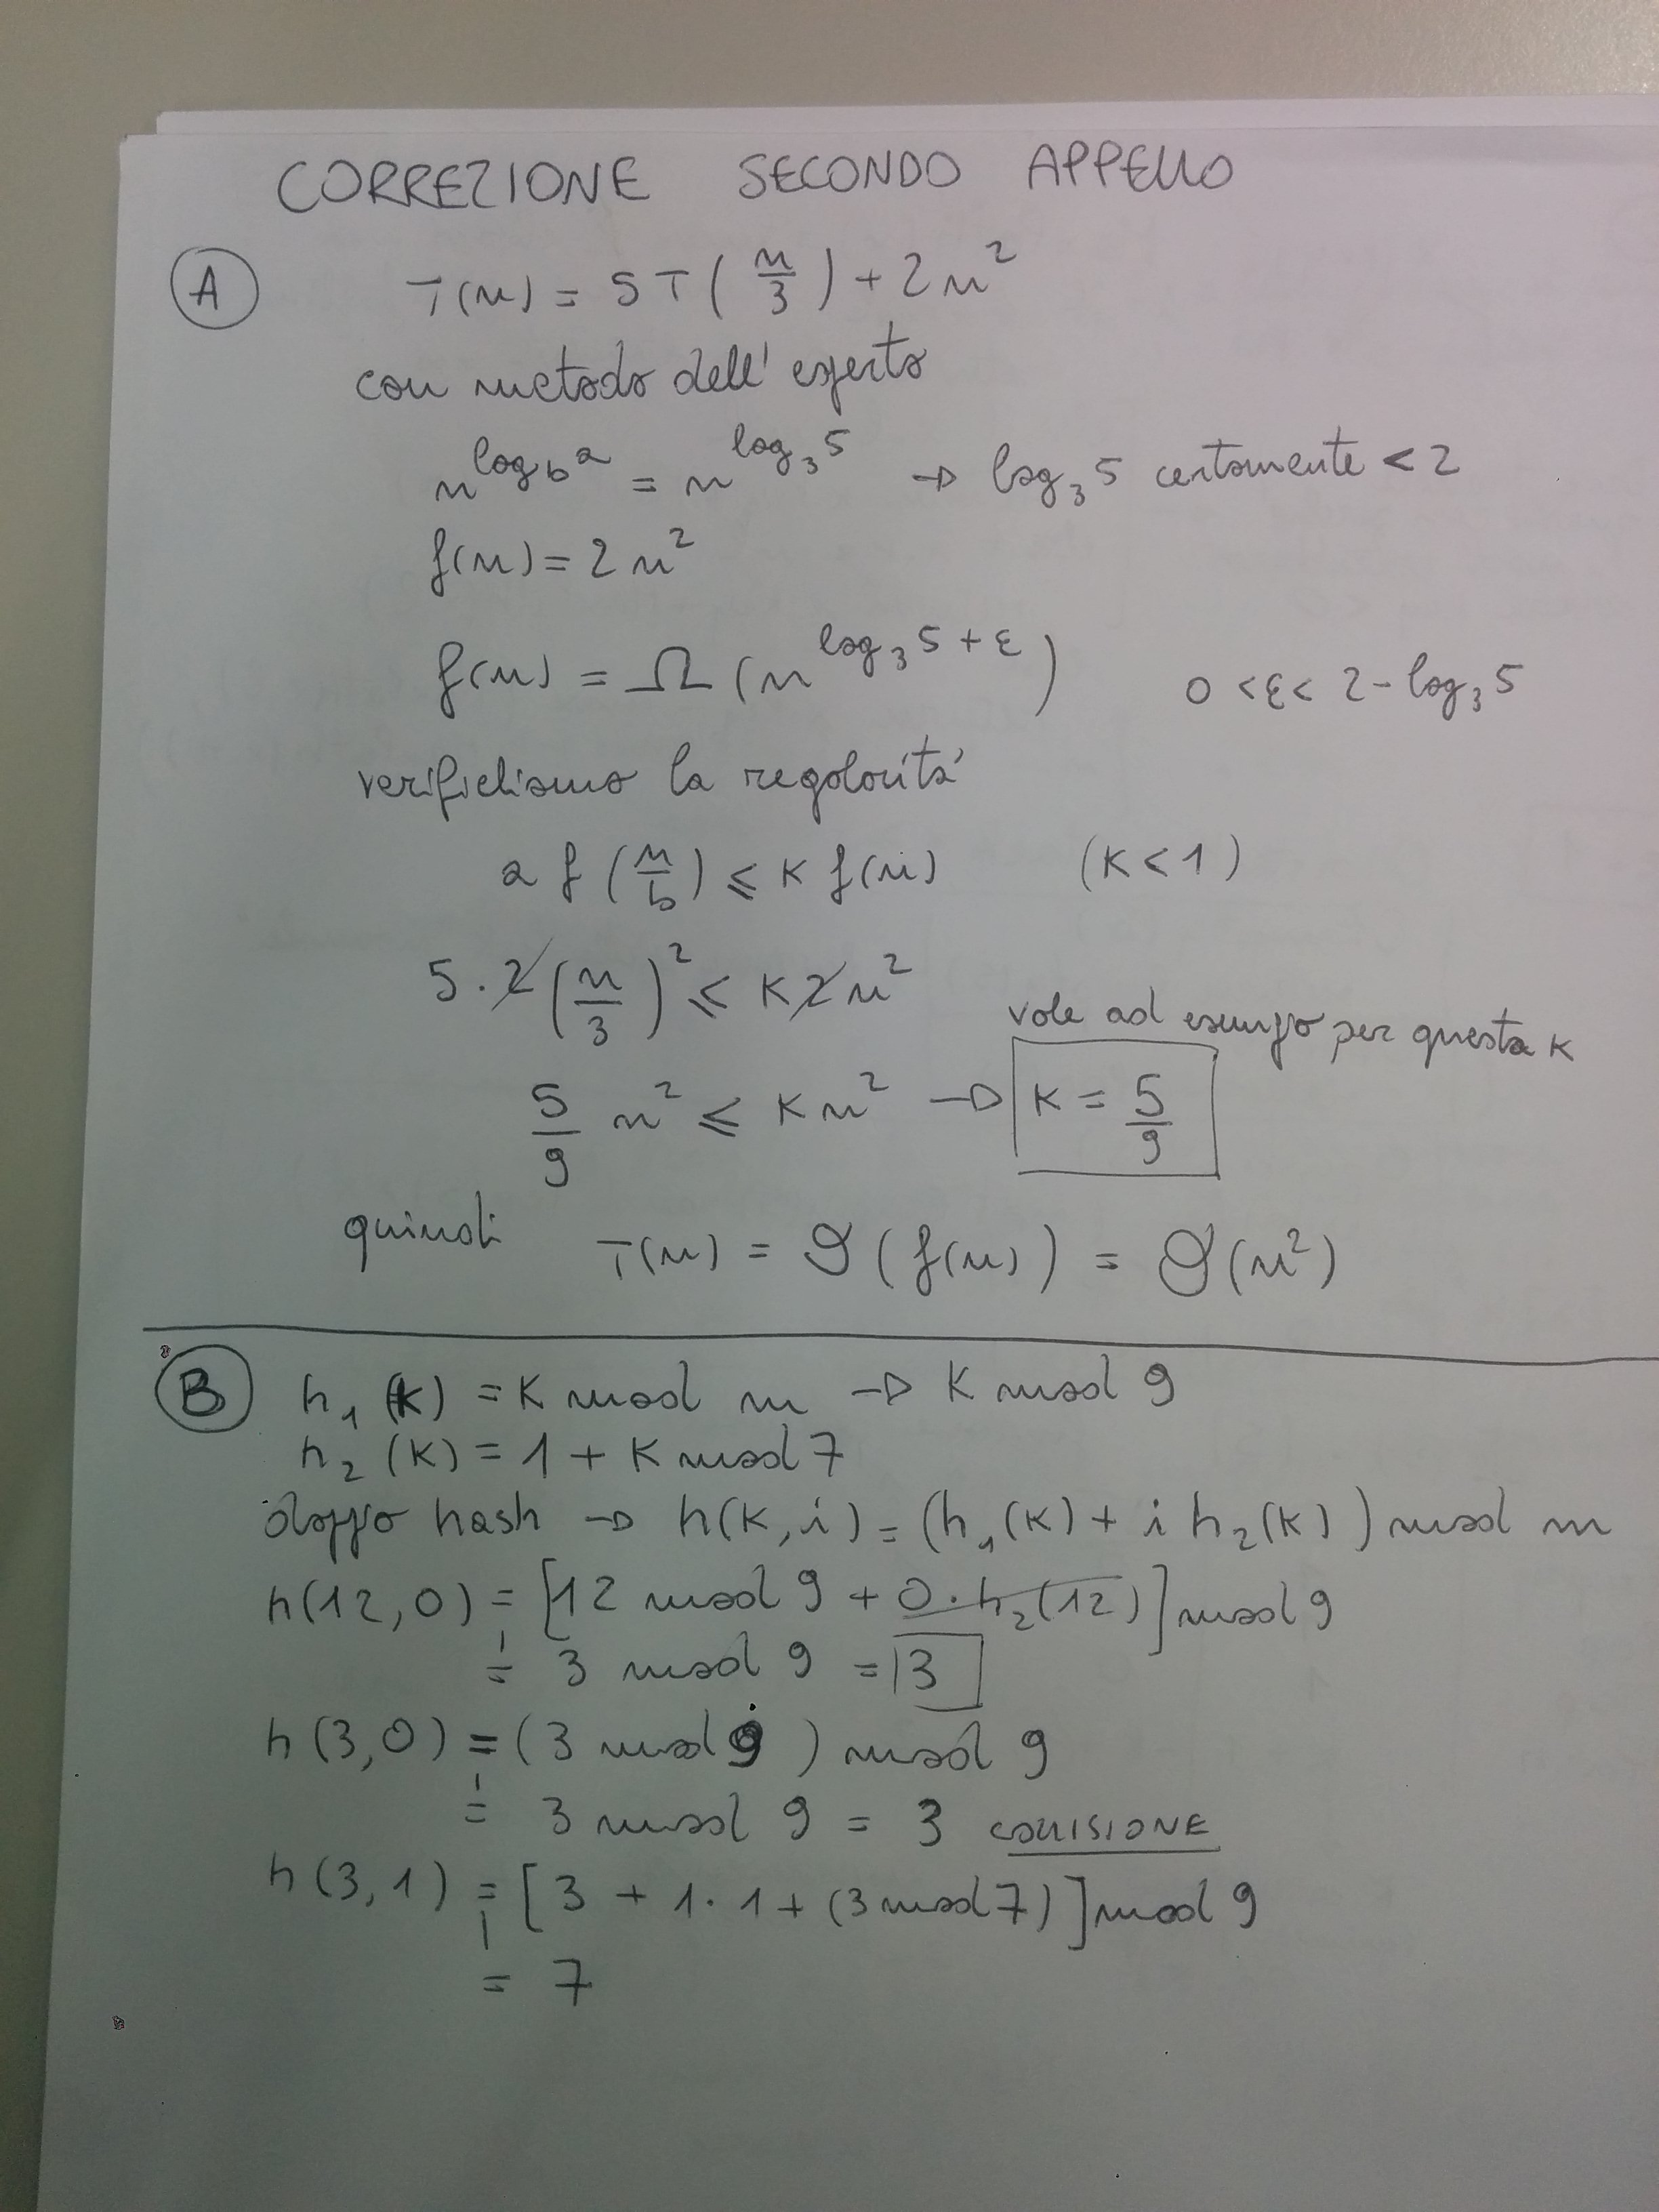 CORREZIONE SECONDO APPELLO
A T(n) = 5T(n/3) + 2n²
con metodo dell'esperto
n^(log_b a) = n^(log₃5) → log₃5 certamente < 2
f(n) = 2n²
f(n) = Ω(n^(log₃5 + ε)) 0 < ε < 2 - log₃5
verifichiamo la regolarità
a f(n/b) ≤ K f(n) (K < 1)
5 · 2(n/3)² ≤ K 2n²
vale ad esempio per questa K
5/9 n² ≤ K n² → K = 5/9
quindi T(n) = ϑ(f(n)) = ϑ(n²)
B h₁(K) = K mod m → K mod 9
h₂(K) = 1 + K mod 7
doppio hash → h(K,i) = (h₁(K) + i h₂(K)) mod m
h(12,0) = [12 mod 9 + 0·h₂(12)] mod 9
= 3 mod 9 = 3
h(3,0) = (3 mod 9) mod 9
= 3 mod 9 = 3 COLLISIONE
h(3,1) = [3 + 1·1 + (3 mod 7)] mod 9
= 7